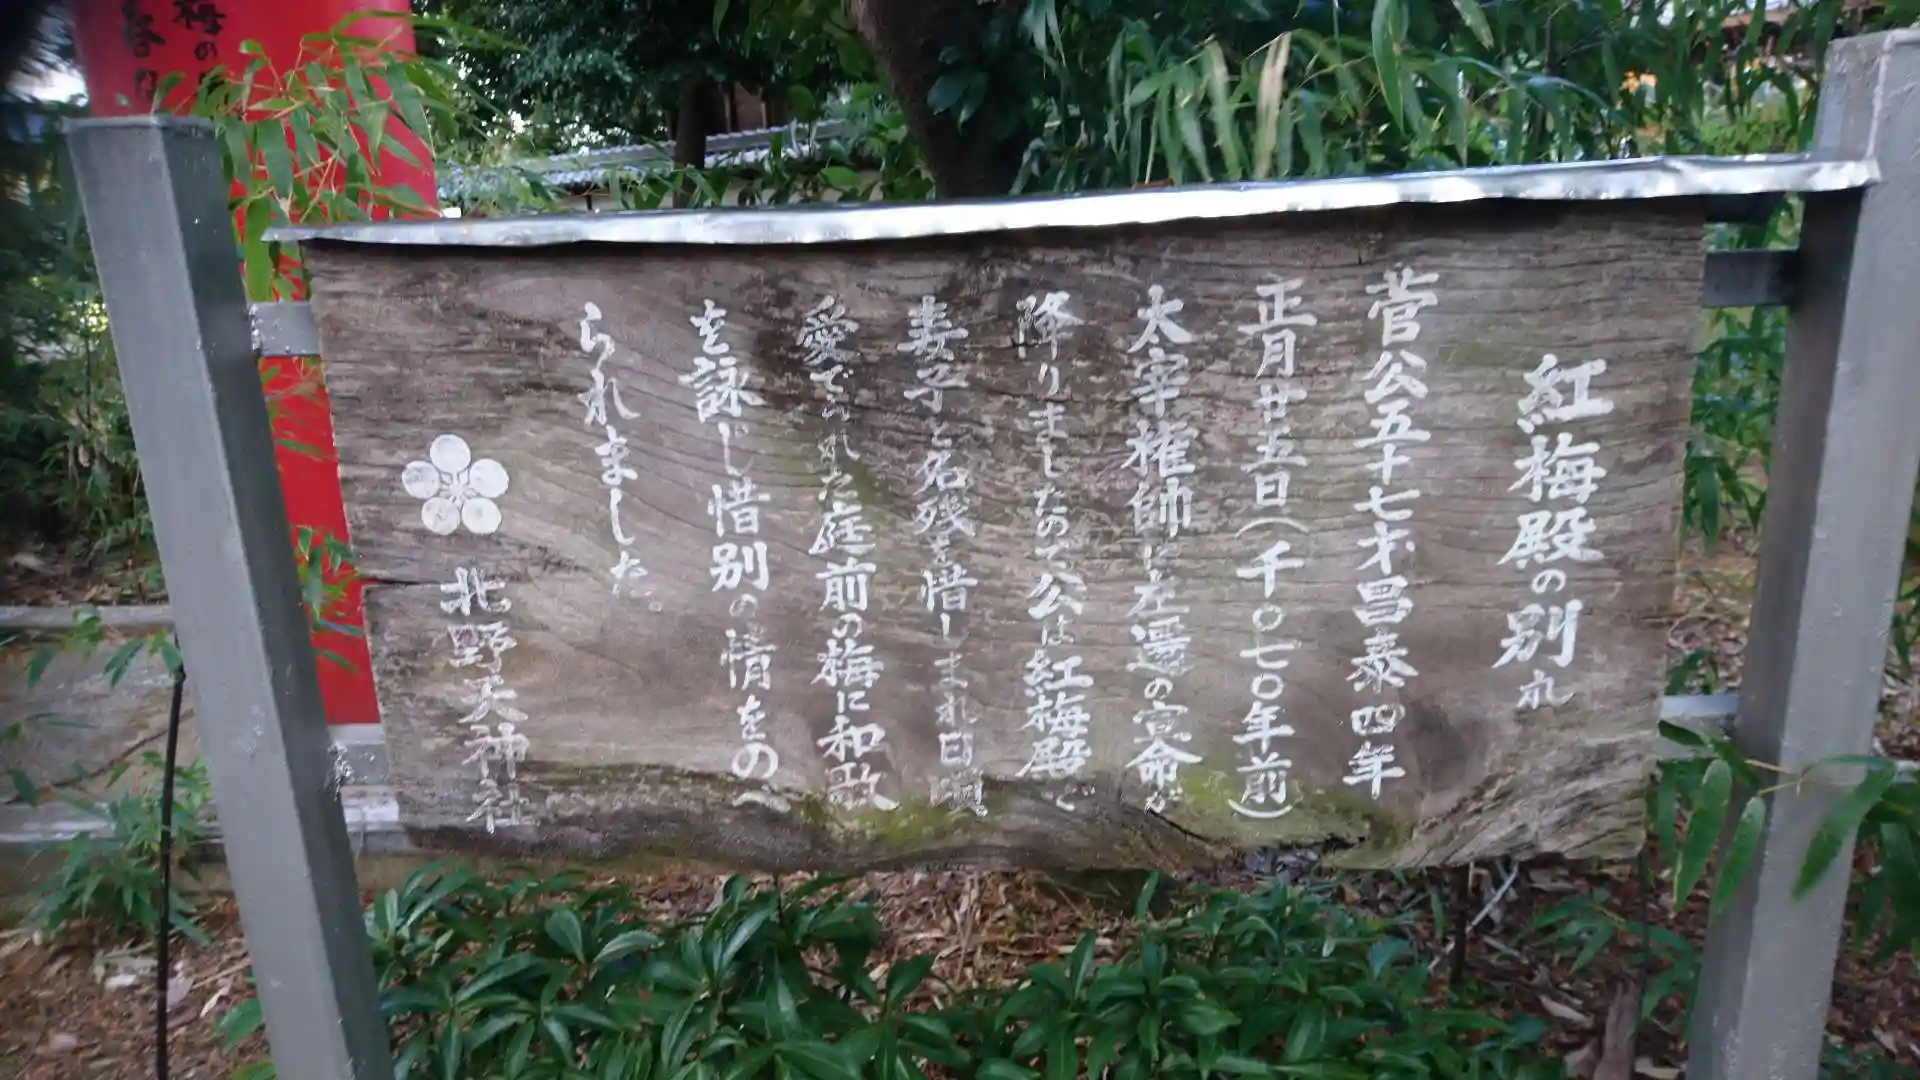 紅梅殿の別れ
菅公五十七才昌泰四年
正月廿五日(千〇七〇年前)
太宰権帥に左遷の宣命が
降りましたので公は紅梅殿で
妻子と名残を惜しまれ日頃
愛でられた庭前の梅に和歌
を詠じ惜別の情をのべ
られました。
北野天神社
梅の
春